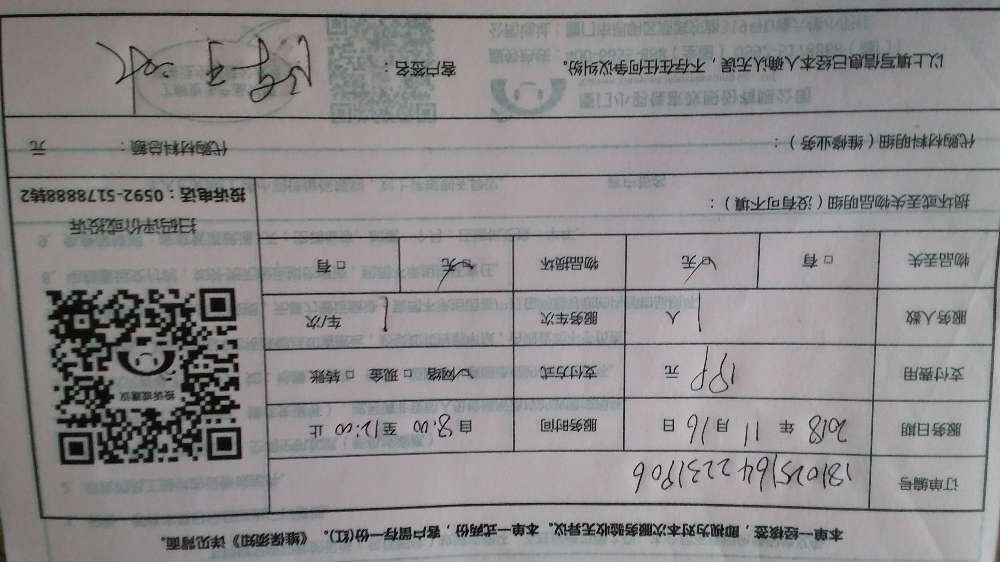 本单一经核签，即视为对本次服务验收无异议。本单一式两份，客户留存一份(红)。《维保须知》详见背面。
订单编号 1810251642231906
服务日期 2018 年 11 月 16 日 服务时间 自 8:00 至 12:00 止
支付费用 199 元 支付方式 ☑网络 □现金 □转账
服务人数 1 人 服务车次 1 车/次
物品丢失 □有 ☑无 物品损坏 ☑无 □有
投诉或建议
扫码评价或投诉
投诉电话：0592-5178888转2
损坏或丢失物品明细（没有可不填）：
代购材料明细（维修业务）： 代购材料总额： 元
以上填写信息已经本人确认无误，不存在任何争议纠纷。 客户签名：